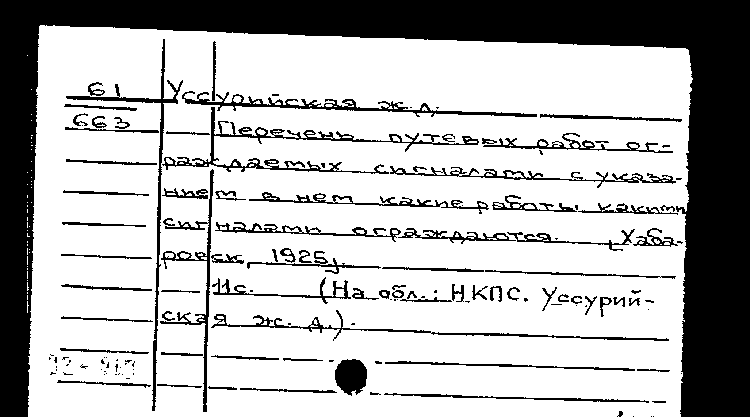 61 Уссурийская ж.д.
663 Перечень путевых работ ог-
раждаемых сигналами с указа-
нием в нем какие работы какими
сигналами ограждаются. [Хаба-
ровск, 1925].
11с. (На обл.: НКПС. Уссурий-
ская ж. д.).